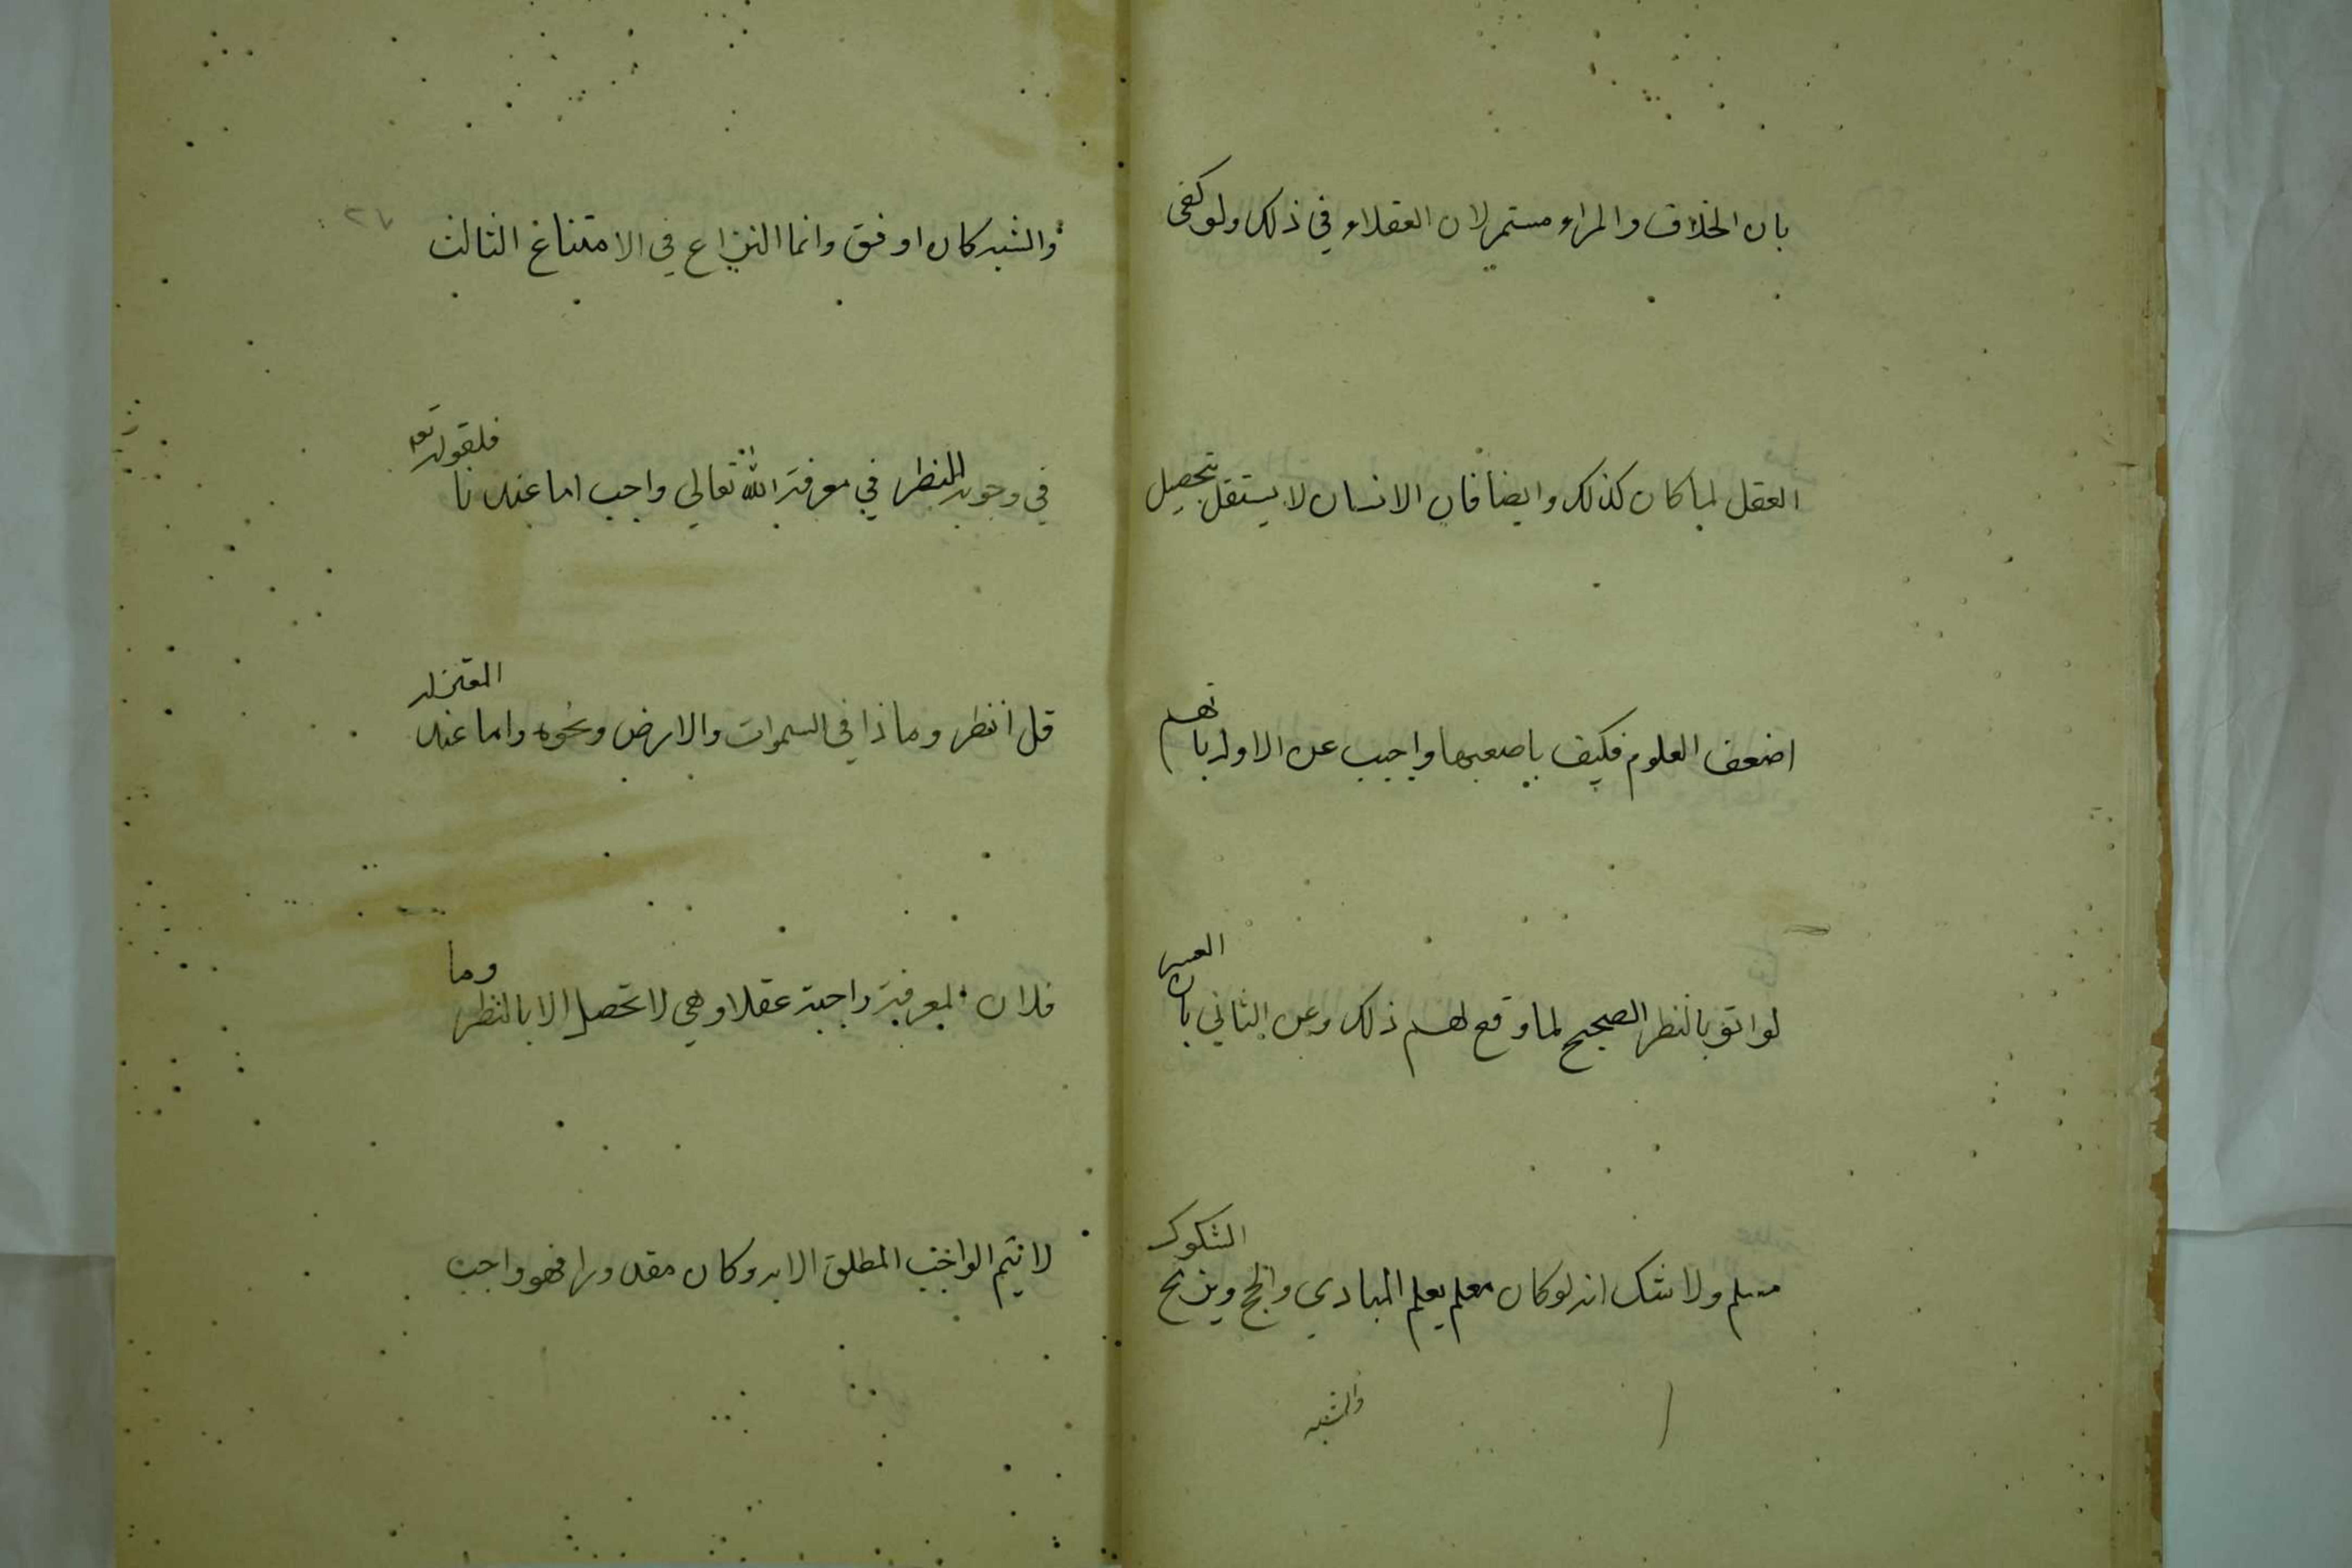 بان الخلاف والمراء مستمر لان العقلاء في ذلك ولو كفى
العقل لما كان كذلك وايضا فان الانسان لا يستقل بتحصيل
اضعف العلوم فكيف باصعبها واجيب عن الاول بانهم
لو اتو بالنظر الصحيح لما وقع لهم ذلك وعن الثاني بان العسر
مسلم ولا شك انه لو كان معلم يعلم المبادي والحجج ويزيح الشكوك
والشبه
والشبه كان اوفق وانما النزاع في الامتناع الثالث
في وجوبه النظر في معرفة الله تعالي واجب اما عندنا فلقوله تع
قل انظر وماذا في السموات والارض ونحوه واما عند المعتزله
فلان المعرفة واجبة عقلا وهي لا تحصل الا بالنظر وما
لا يتم الواجب المطلق الا به وكان مقدورا فهو واجب